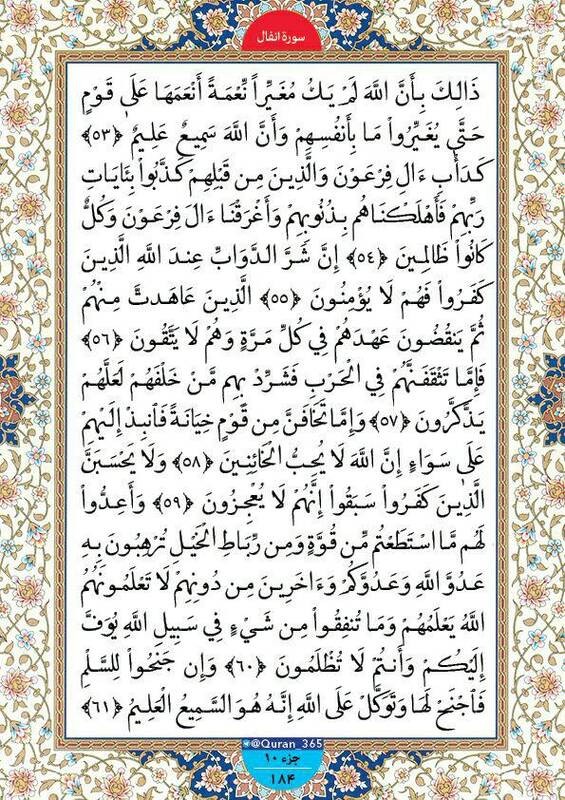 سورة انفال
ذَالِكَ بِأَنَّ اللَّهَ لَمْ يَكُ مُغَيِّرًا نِّعْمَةً أَنْعَمَهَا عَلَىٰ قَوْمٍ
حَتَّىٰ يُغَيِّرُواْ مَا بِأَنفُسِهِمْ وَأَنَّ اللَّهَ سَمِيعٌ عَلِيمٌ ﴿٥٣﴾
كَدَأْبِ ءَالِ فِرْعَوْنَ وَالَّذِينَ مِن قَبْلِهِمْ كَذَّبُواْ بِئَايَاتِ
رَبِّهِمْ فَأَهْلَكْنَاهُم بِذُنُوبِهِمْ وَأَغْرَقْنَا ءَالَ فِرْعَوْنَ وَكُلٌّ
كَانُواْ ظَالِمِينَ ﴿٥٤﴾ إِنَّ شَرَّ الدَّوَابِّ عِندَ اللَّهِ الَّذِينَ
كَفَرُواْ فَهُمْ لَا يُؤْمِنُونَ ﴿٥٥﴾ الَّذِينَ عَاهَدتَّ مِنْهُمْ
ثُمَّ يَنقُضُونَ عَهْدَهُمْ فِي كُلِّ مَرَّةٍ وَهُمْ لَا يَتَّقُونَ ﴿٥٦﴾
فَإِمَّا تَثْقَفَنَّهُمْ فِي الْحَرْبِ فَشَرِّدْ بِهِم مَّنْ خَلْفَهُمْ لَعَلَّهُمْ
يَذَّكَّرُونَ ﴿٥٧﴾ وَإِمَّا تَخَافَنَّ مِن قَوْمٍ خِيَانَةً فَانبِذْ إِلَيْهِمْ
عَلَىٰ سَوَاءٍ إِنَّ اللَّهَ لَا يُحِبُّ الْخَائِنِينَ ﴿٥٨﴾ وَلَا يَحْسَبَنَّ
الَّذِينَ كَفَرُواْ سَبَقُواْ إِنَّهُمْ لَا يُعْجِزُونَ ﴿٥٩﴾ وَأَعِدُّواْ
لَهُم مَّا اسْتَطَعْتُم مِّن قُوَّةٍ وَمِن رِّبَاطِ الْخَيْلِ تُرْهِبُونَ بِهِ
عَدُوَّ اللَّهِ وَعَدُوَّكُمْ وَءَاخَرِينَ مِن دُونِهِمْ لَا تَعْلَمُونَهُمُ
اللَّهُ يَعْلَمُهُمْ وَمَا تُنفِقُواْ مِن شَيْءٍ فِي سَبِيلِ اللَّهِ يُوَفَّ
إِلَيْكُمْ وَأَنتُمْ لَا تُظْلَمُونَ ﴿٦٠﴾ وَإِن جَنَحُواْ لِلسَّلْمِ
فَاجْنَحْ لَهَا وَتَوَكَّلْ عَلَى اللَّهِ إِنَّهُ هُوَ السَّمِيعُ الْعَلِيمُ ﴿٦١﴾
@Quran_365
جزء ۱۰
۱۸۴